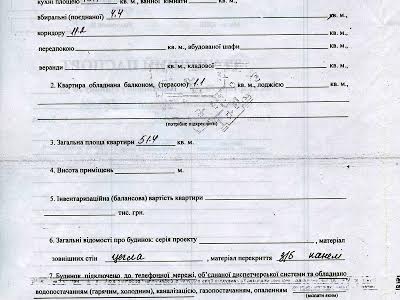 кухні площею кв. м., ванної кімнати кв. м.,
вбиральні (поєднаної) 4.4 кв. м.,
коридору 11.2 кв. м.,
передпокою кв. м., вбудованої шафи кв. м.,
веранди кв. м., кладової кв. м.
2. Квартира обладнана балконом, (терасою) 1.1 кв. м., лоджією кв. м.
(потрібне підкреслити)
3. Загальна площа квартири 51.4 кв. м.
4. Висота приміщень м.
5. Інвентаризаційна (балансова) вартість квартири
тис. грн.
6. Загальні відомості про будинок: серія проекту , матеріал
зовнішніх стін цегла , матеріал перекриття з/б панелі
7. Будинок підключено до телефонної мережі, об'єднаної диспетчерської системи та обладнано
водопостачанням (гарячим, холодним), каналізацією, газопостачанням, опаленням